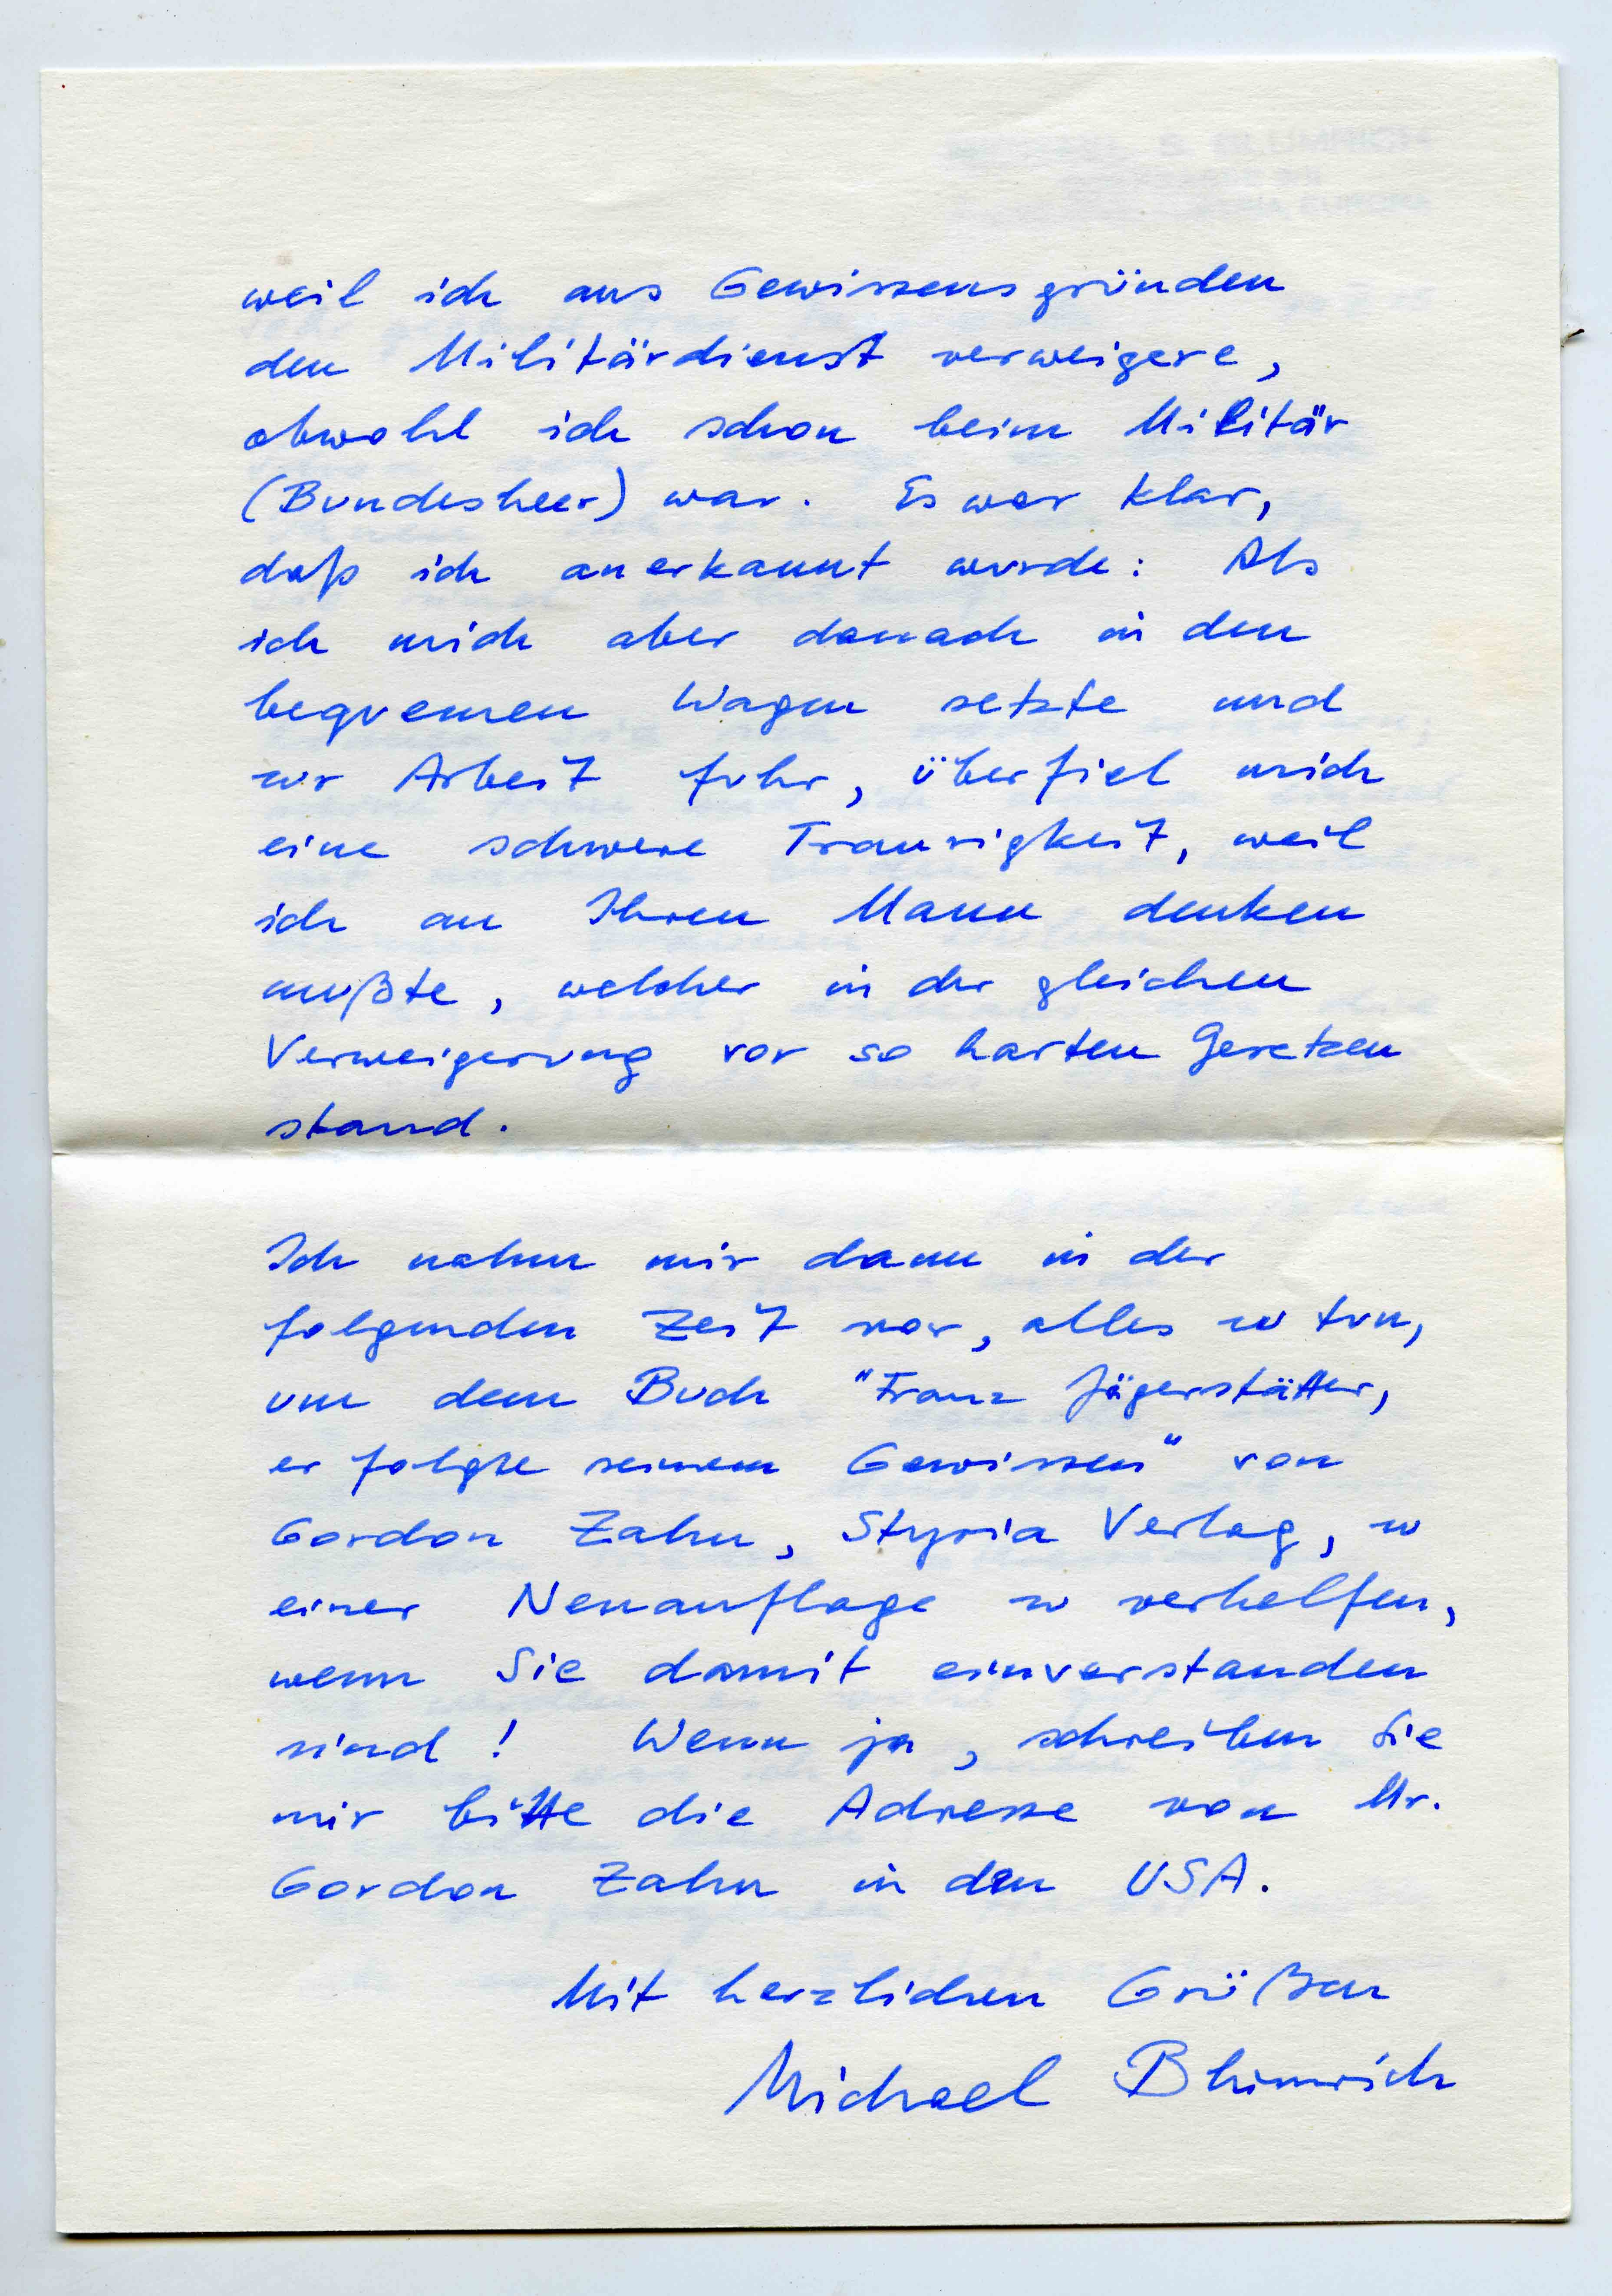 weil ich aus Gewissensgründen
den Militärdienst verweigere,
obwohl ich schon beim Militär
(Bundesheer) war. Es war klar,
daß ich anerkannt wurde: Als
ich mich aber danach in den
bequemen Wagen setzte und
zur Arbeit fuhr, überfiel mich
eine schwere Traurigkeit, weil
ich an Ihren Mann denken
mußte, welcher in der gleichen
Verweigerung vor so harten Gesetzen
stand.
Ich nahm mir dann in der
folgenden Zeit vor, alles zu tun,
um dem Buch "Franz Jägerstätter,
er folgte seinem Gewissen" von
Gordon Zahn, Styria Verlag, zu
einer Neuauflage zu verhelfen,
wenn Sie damit einverstanden
sind! Wenn ja, schreiben Sie
mir bitte die Adresse von Mr.
Gordon Zahn in den USA.
Mit herzlichen Grüßen
Michael Blumrich